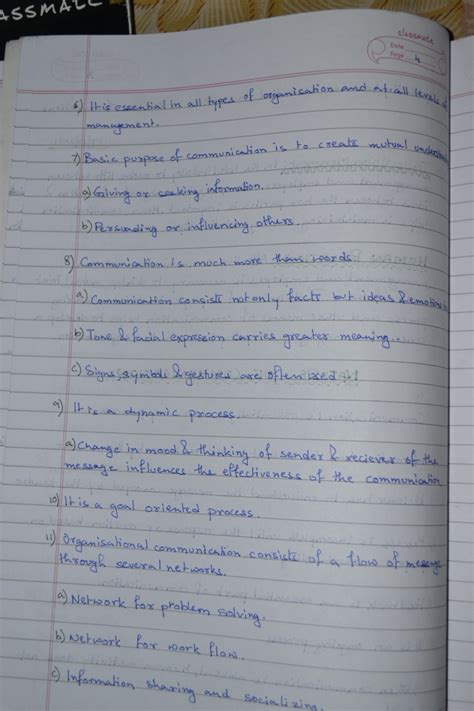 ASSMATE
classmate
Date
Page 4
6) It is essential in all types of organisation and at all levels of
management.
7) Basic purpose of communication is to create mutual understand
a) Giving or seeking information.
b) Persuading or influencing others.
8) Communication is much more than words
a) Communication consists not only facts but ideas & emotions
b) Tone & facial expression carries greater meaning..
c) Signs, symbols & gestures are often used
9) It is a dynamic process.
a) Change in mood & thinking of sender & reciever of the
message influences the effectiveness of the communication
10) It is a goal oriented process.
11) Organisational communication consists of a flow of message
through several networks.
a) Network for problem solving.
b) Network for work flow.
c) Information sharing and socializing.